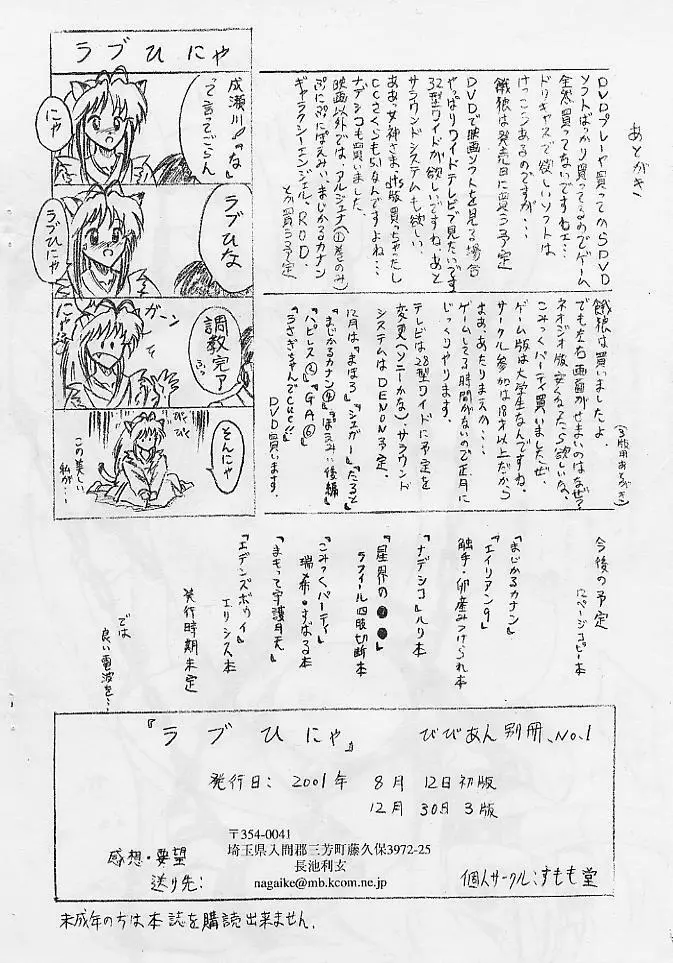 ラブひにゃ
成瀬川「な」
って言ってごらん
にゃ
ラブひな
ラブひにゃ
ガーン
調教完了
ふっ
びくびく
そんにゃ
この美しい
私が・・・
あとがき
DVDプレーヤ買ってからDVD
ソフトばっかり買ってるのでゲーム
全然買ってないですねェ・・・
ドリキャスで欲しいソフトは
けっこうあるのですが・・・
餓狼は発売日に買う予定
DVDで映画ソフトを見る場合
やっぱりワイドテレビで見たいです
32型ワイドが欲しいですね、あと
サラウンドシステムも欲しい、
ああっ女神さまっdts版買っちゃったし
CCさくらも5.1なんですよね・・・
ナデシコも買いました。
映画以外では、アルジェナ(①巻のみ)
ぷにぷに☆ぽえみぃ、まじかるカナン
ギャラクシーエンジェル、R.O.D.
とか買う予定
(3版用あとがき)
餓狼は買いましたよ。
でも左右画面がせまいのはなぜ?
ネオジオ版安くなったら欲しいな、
こみっくパーティ買いましたぜ、
ゲーム版は大学生なんですね。
サークル参加は18才以上だから
まぁ、あたりまえか・・・
ゲームしてる時間がないので正月に
じっくりやります。
テレビは28型ワイドに予定を
変更(ソニーかな)、サラウンド
システムはDENON予定、
12月は『まほろ』『ジェガー』『たると』
『まじかるカナン④』『ぽえみぃ後編』
『ハピレス②』『GA⑥』
『うさぎちゃんでCue!!』
DVD買います。
今後の予定
12ページコピー本
『まじかるカナン』
『エイリアン9』
触手・卵産みつけられ本
『ナデシコ』ルリ本
『星界の●●』
ラフィール四肢切断本
『こみっくパーティ』
瑞希・すばる本
『まもって守護月天』
『エデンズボゥイ』
エリシス本
発行時期未定
では
良い電波を・・・
『ラブひにゃ』 びびあん別冊、No.1
発行日: 2001年 8月 12日初版
12月 30日 3版
〒354-0041
埼玉県入間郡三芳町藤久保3972-25
長池利玄
nagaike@mb.kcom.ne.jp
感想・要望
送り先:
個人サークル:すもも堂
未成年の方は本誌を購読出来ません.